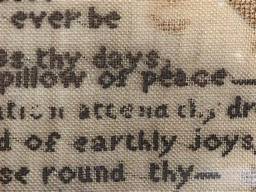 ever be
thy days,
pillow of peace
attend thy dr
of earthly joys,
round thy